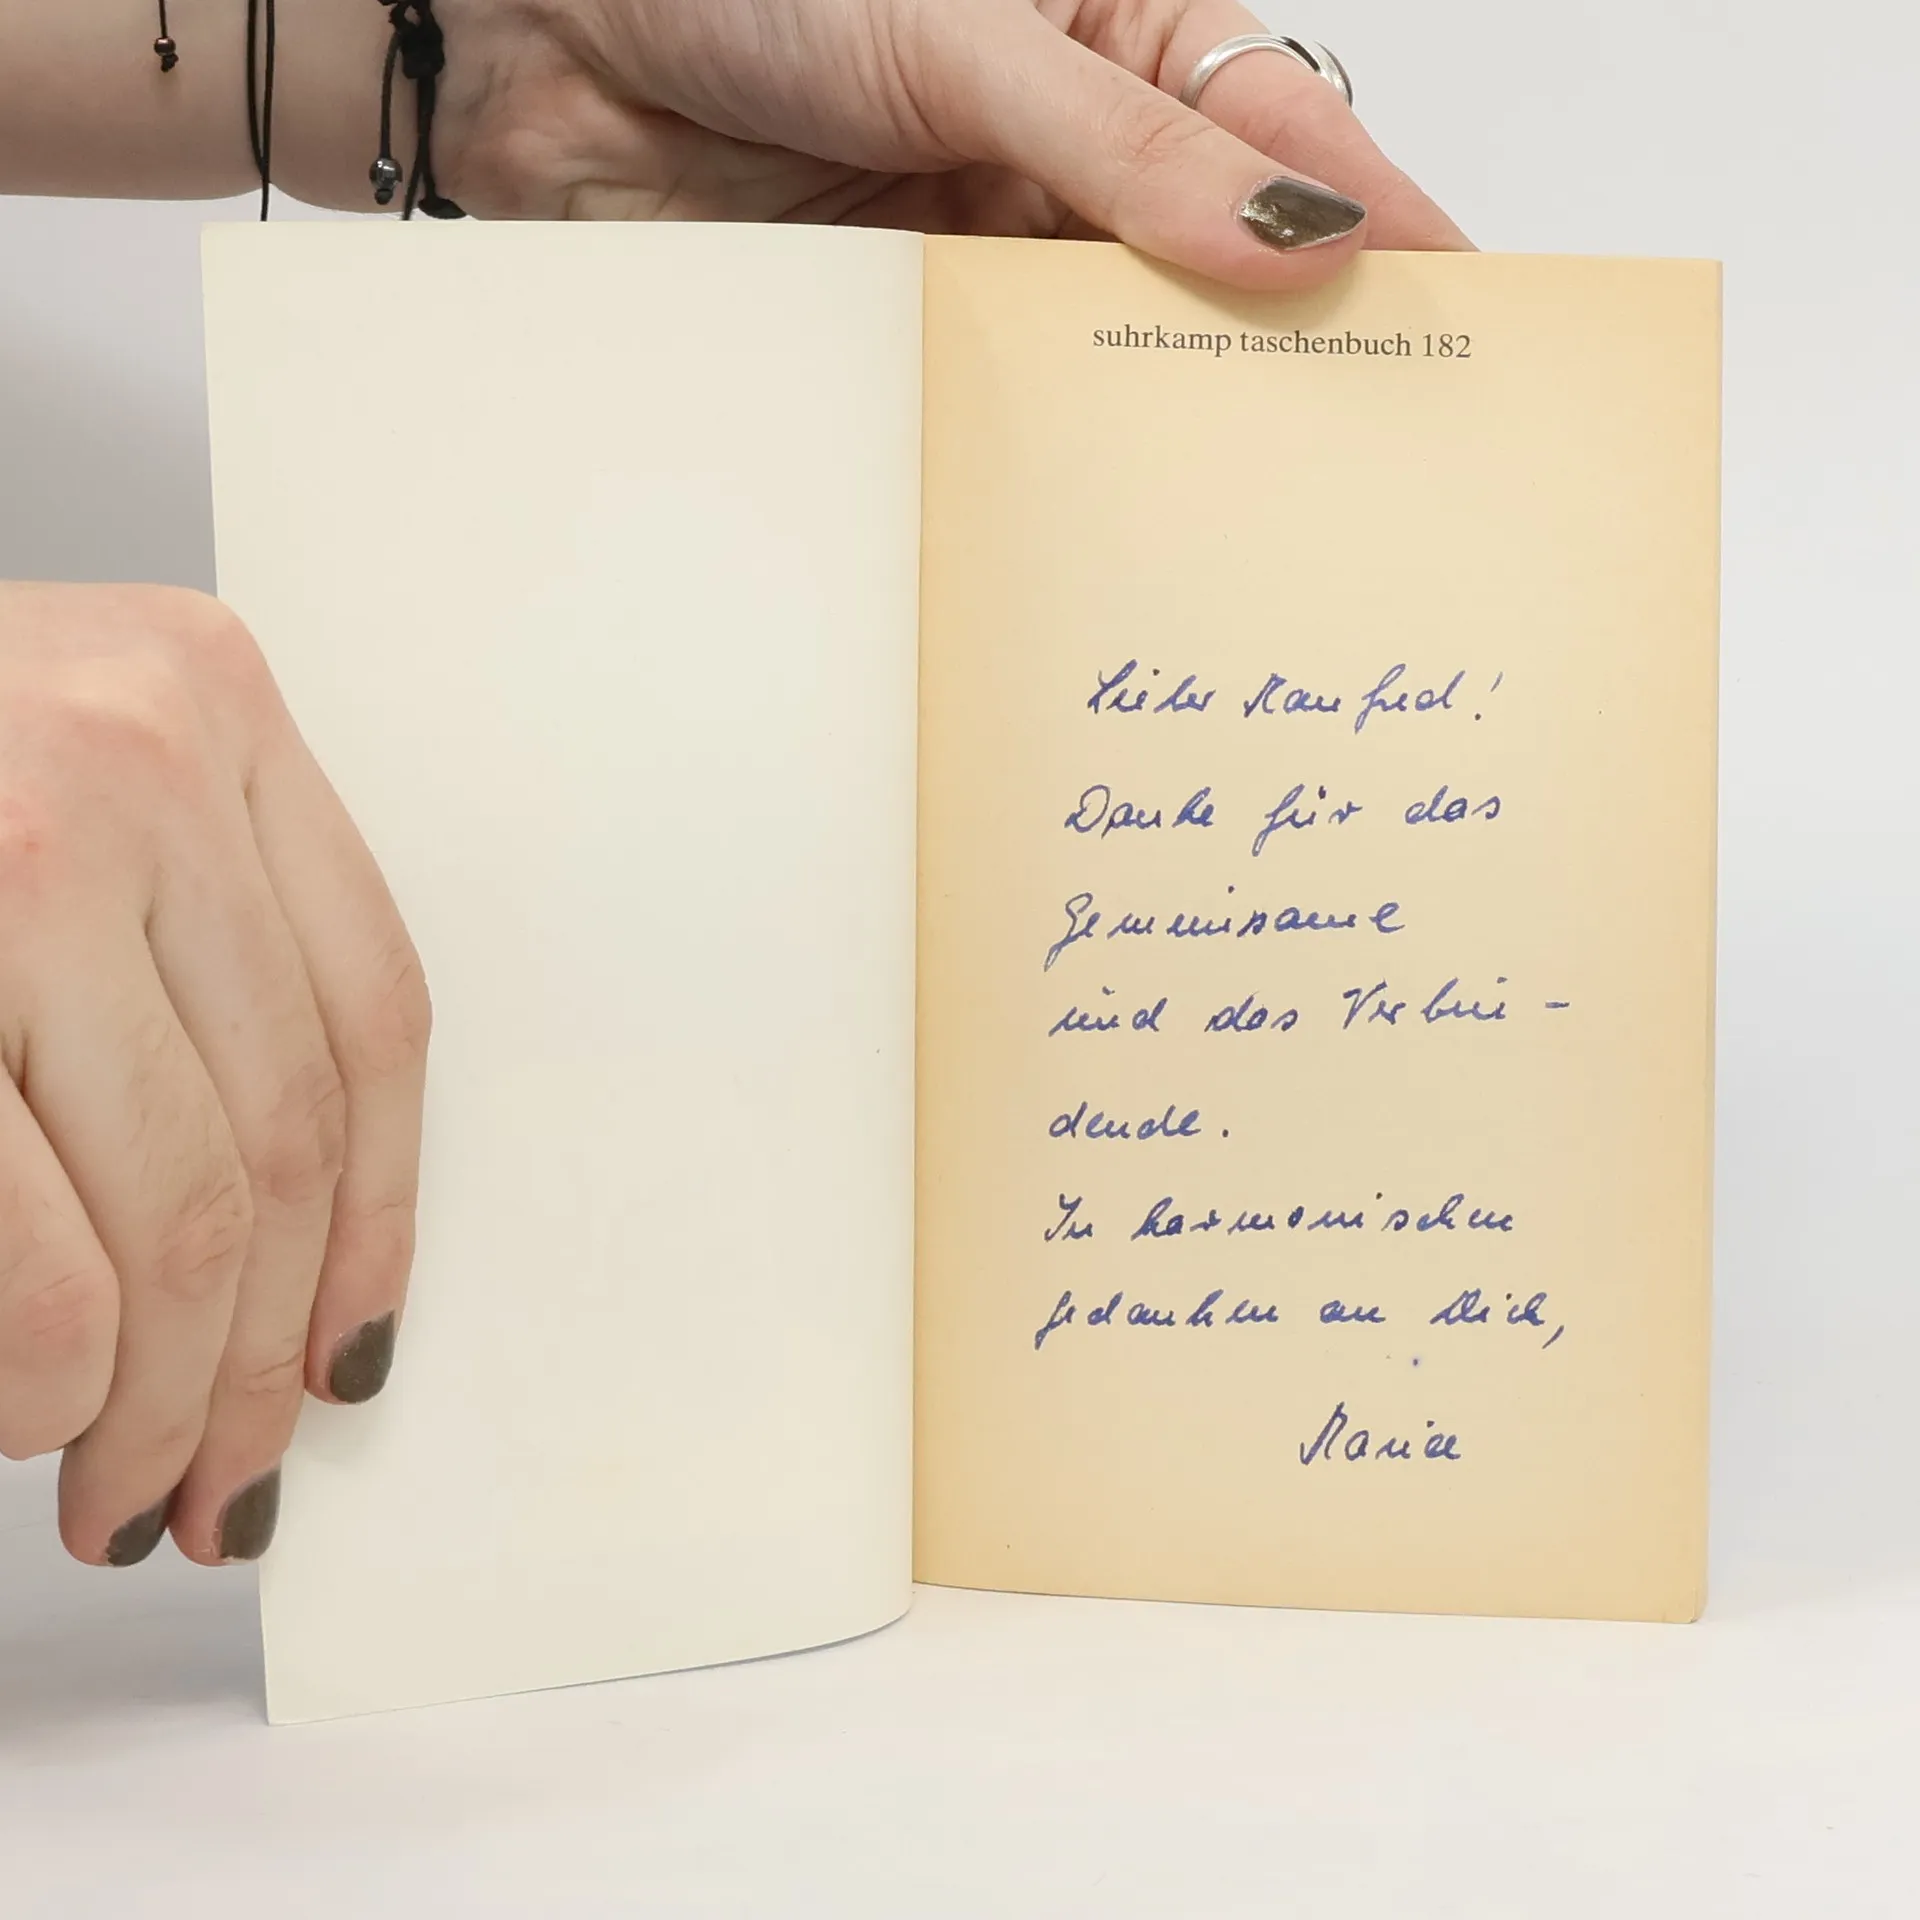 suhrkamp taschenbuch 182
Lieber Manfred!
Danke für das
Gemeinsame
und das Verbin-
dende.
In harmonischen
Gedanken an Dich,
Maria